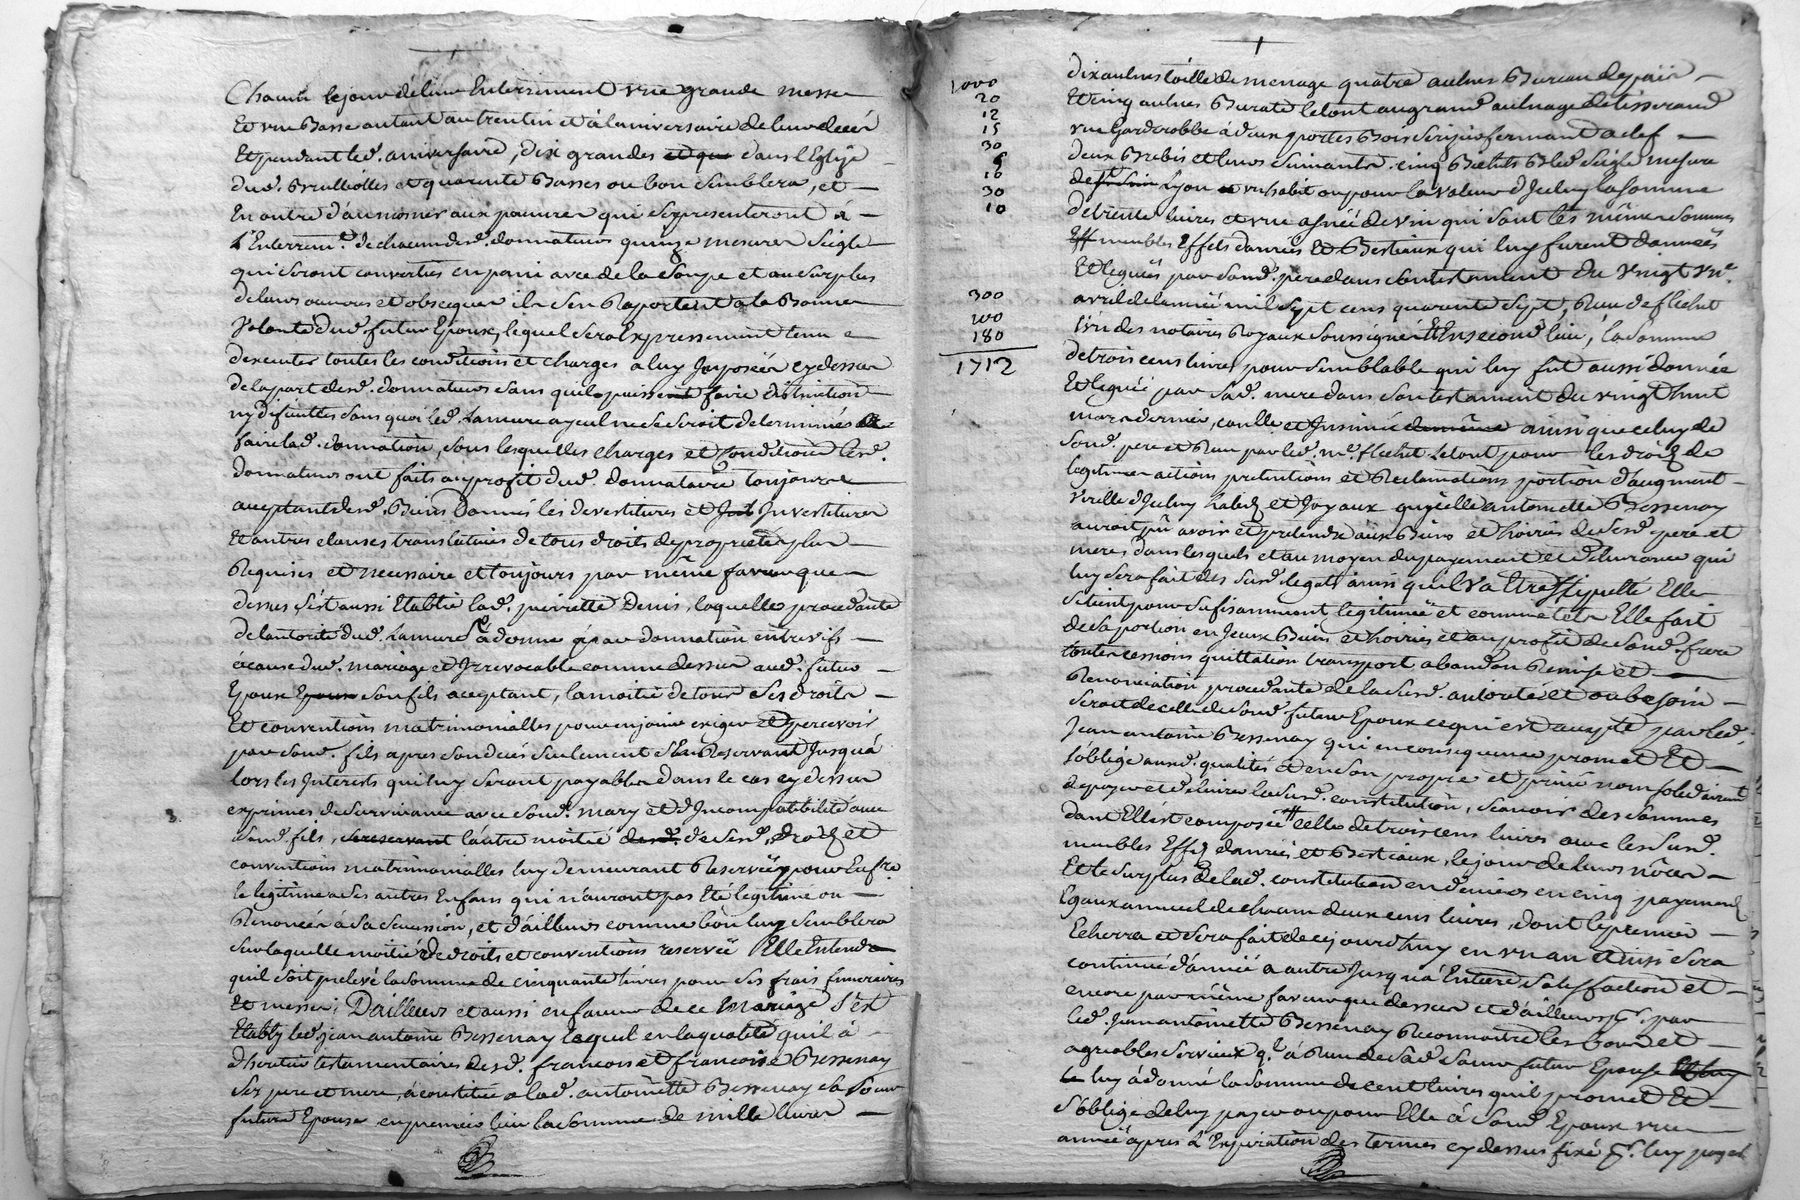 Chacun le jour de leur Enterrement une grande messe
Et une Basse autant au trentin et a l'aniversaire de leur deces
Et pendant led. aniversaire, dix grandes et que dans l'Eglise
dud. Brullioles et quarente Basses ou bon semblera, et
En outre d'aumoner aux pauvres qui se presenteront à
l'Enterremt. de chacun desd. donnateurs quinze mesures seigle
qui seront converties en pain avec de la soupe et au surplus
de leurs œuvres et obseques ils s'en Raportent a la Bonne
Volonté dud. futur Epoux, lequel sera Expressement tenu
d'executer toutes les conditions et charges a luy Imposées cy dessus
de la part desd. donnateurs sans qu'il puisse en faire distraction
ny disputes sans quoi led. Lamure ayeul ne se seroit determiné a
faire lad. donnation, sous lesquelles charges et Conditions lesd.
donnateurs ont faits au profit dud. donnataire toujours
acceptant desd. Biens Donnés les devestitures et Investitures
Et autres clauses translatives de tous droits de proprieté plus
Requises et necessaire et toujours par même faveur que
dessus s'est aussi Etablie lad. pierrette Denis, laquelle procedante
de l'autorité dud. Lamure a donné par donnation entrevifs
à cause dud. mariage et Irrevocable comme dessus aud. futur
Epoux Epoux son fils aceptant, la moitié de tous ses droits
Et conventions matrimonialles pour en jouir exiger et percevoir
par sond. fils apres son deces seulement s'En Reservant Jusqu'à
lors les Interests qui luy seront payables dans le cas cy dessus
exprimes de survivance avec sond. mary et d'Incompatibilité avec
sond. fils, se reservant l'autre moitié desd. de sesd. droits et
conventions matrimonialles luy demeurant Reservée pour En fre.
le legitime a ses autres Enfans qui n'auront pas Eté legitimé ou
Renoncés à sa succession, et d'ailleurs comme bon luy semblera
sur laquelle moitié de droits et conventions reservée Elle Entend
qu'il soit prelevé la somme de cinquante livres pour ses frais funeraires
Et messes; D'ailleurs et aussi en faveur de ce mariage s'est
Etably led. jean antoine Bessenay lequel en la qualité qu'il à
d'heritier testamentaires desd. francois et francoise Bessenay
ses pere et mere, à constitué a lad. antoinette Bessenay sa soeur
future Epouse en premier lieu la somme de mille livres
1000
20
12
15
30
16
30
10
300
100
180
1712
dix aulnes toille de menage quatre aulnes Bureau de pais
Et cinq aulnes Burate le tout au grand aulnage de tisserand
une Garderobbe à deux portes Bois serizier fermant a clef
deux Brebis et leurs suivants, cinq Bichets Bled seigle mesure
de Lyon et un habit ou pour la valeur d'Iceluy la somme
de trente livres et une asnée de vin qui sont les mêmes sommes
Eff meubles Effets danrées Et Bestiaux qui luy furent donnés
Et legués par sond. pere dans son testament du vingt un
avril de l'année mil sept cens quarente sept, Reçu de flechet
l'un des notaires Royaux soussignés Et En second lieu, la somme
de trois cens livres pour semblable qui luy fut aussi donnée
Et leguée par sad. mere dans son testament du vingt huit
mars dernier, conllé et Insinué de même ainsi que celuy de
sond. pere et Reçu par led. me. flechet Letout pour les droits de
legitimes actions pretentions et Reclamations portion d'augment
virille d'Iceluy habits et Joyaux qu'icelle antoinette Bessenay
auroit pû avoir et pretendre aux Biens et hoiries de sesd. pere et
meres dans lesquels et au moyen du payement et delivrance qui
luy sera fait des susd. legats ainsi qu'il Va Etre stipulé Elle
se tient pour sufisamment legitimée et comme telle Elle fait
de sa portion en Iceux Biens et hoiries et au profit de sond. frere
toutes cessions quittation transport abandon Remise et
Renonciation procedante de la susd. autorité et ou besoin
seroit de celle de sond. futur Epoux ce qui est accepté par led.
Jean antoine Bessenay qui en consequence promet Et
s'oblige ausd. qualités et en son propre et privé nom solidairement
de payer et delivrer la susd. constitution, scavoir des sommes
dont Elle est composée celle de trois cens livres avec les susd.
meubles Effets danrées et Bestiaux, le jour de leurs nôces
Et le surplus de lad. constitution en deniers en cinq payements
Egaux annuel de chacun deux cens livres, dont le premier
Echerra et sera fait de ce jourd'huy en un an et ainsi sera
continué d'année a autre Jusqu'à Entiere satisfaction et
encore par même faveur que dessus et d'ailleurs pr. par
led. Jean antoinette Bessenay Reconnoitre les bons et
agreables services ql. à Reçu de sad. soeur future Epouse Et luy
luy à donné la somme de cent livres qu'il promet Et
s'oblige de luy payer ou pour Elle à sond. Epoux une
année apres l'Expiration des termes cy dessus fixé pr. luy payer